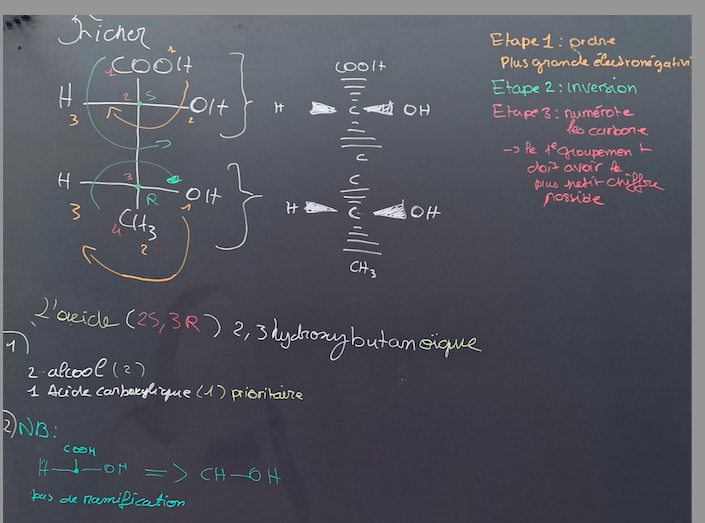 Fricher
1
1 COOH
H 2 S OH
3 2
H 3 OH
R
3 1
CH3
4 2
COOH
H C OH
C
C
H C OH
CH3
Etape 1 : ordre
Plus grande électronégativi
Etape 2 : inversion
Etape 3 : numérote
les carbone
-> le 1e groupement
doit avoir le
plus petit chiffre
possible
L'acide (2S, 3R) 2,3 hydroxybutanoïque
1)
2 alcool (2)
1 Acide carboxylique (1) prioritaire
2) NB:
COOH
H OH => CH-OH
pas de ramification